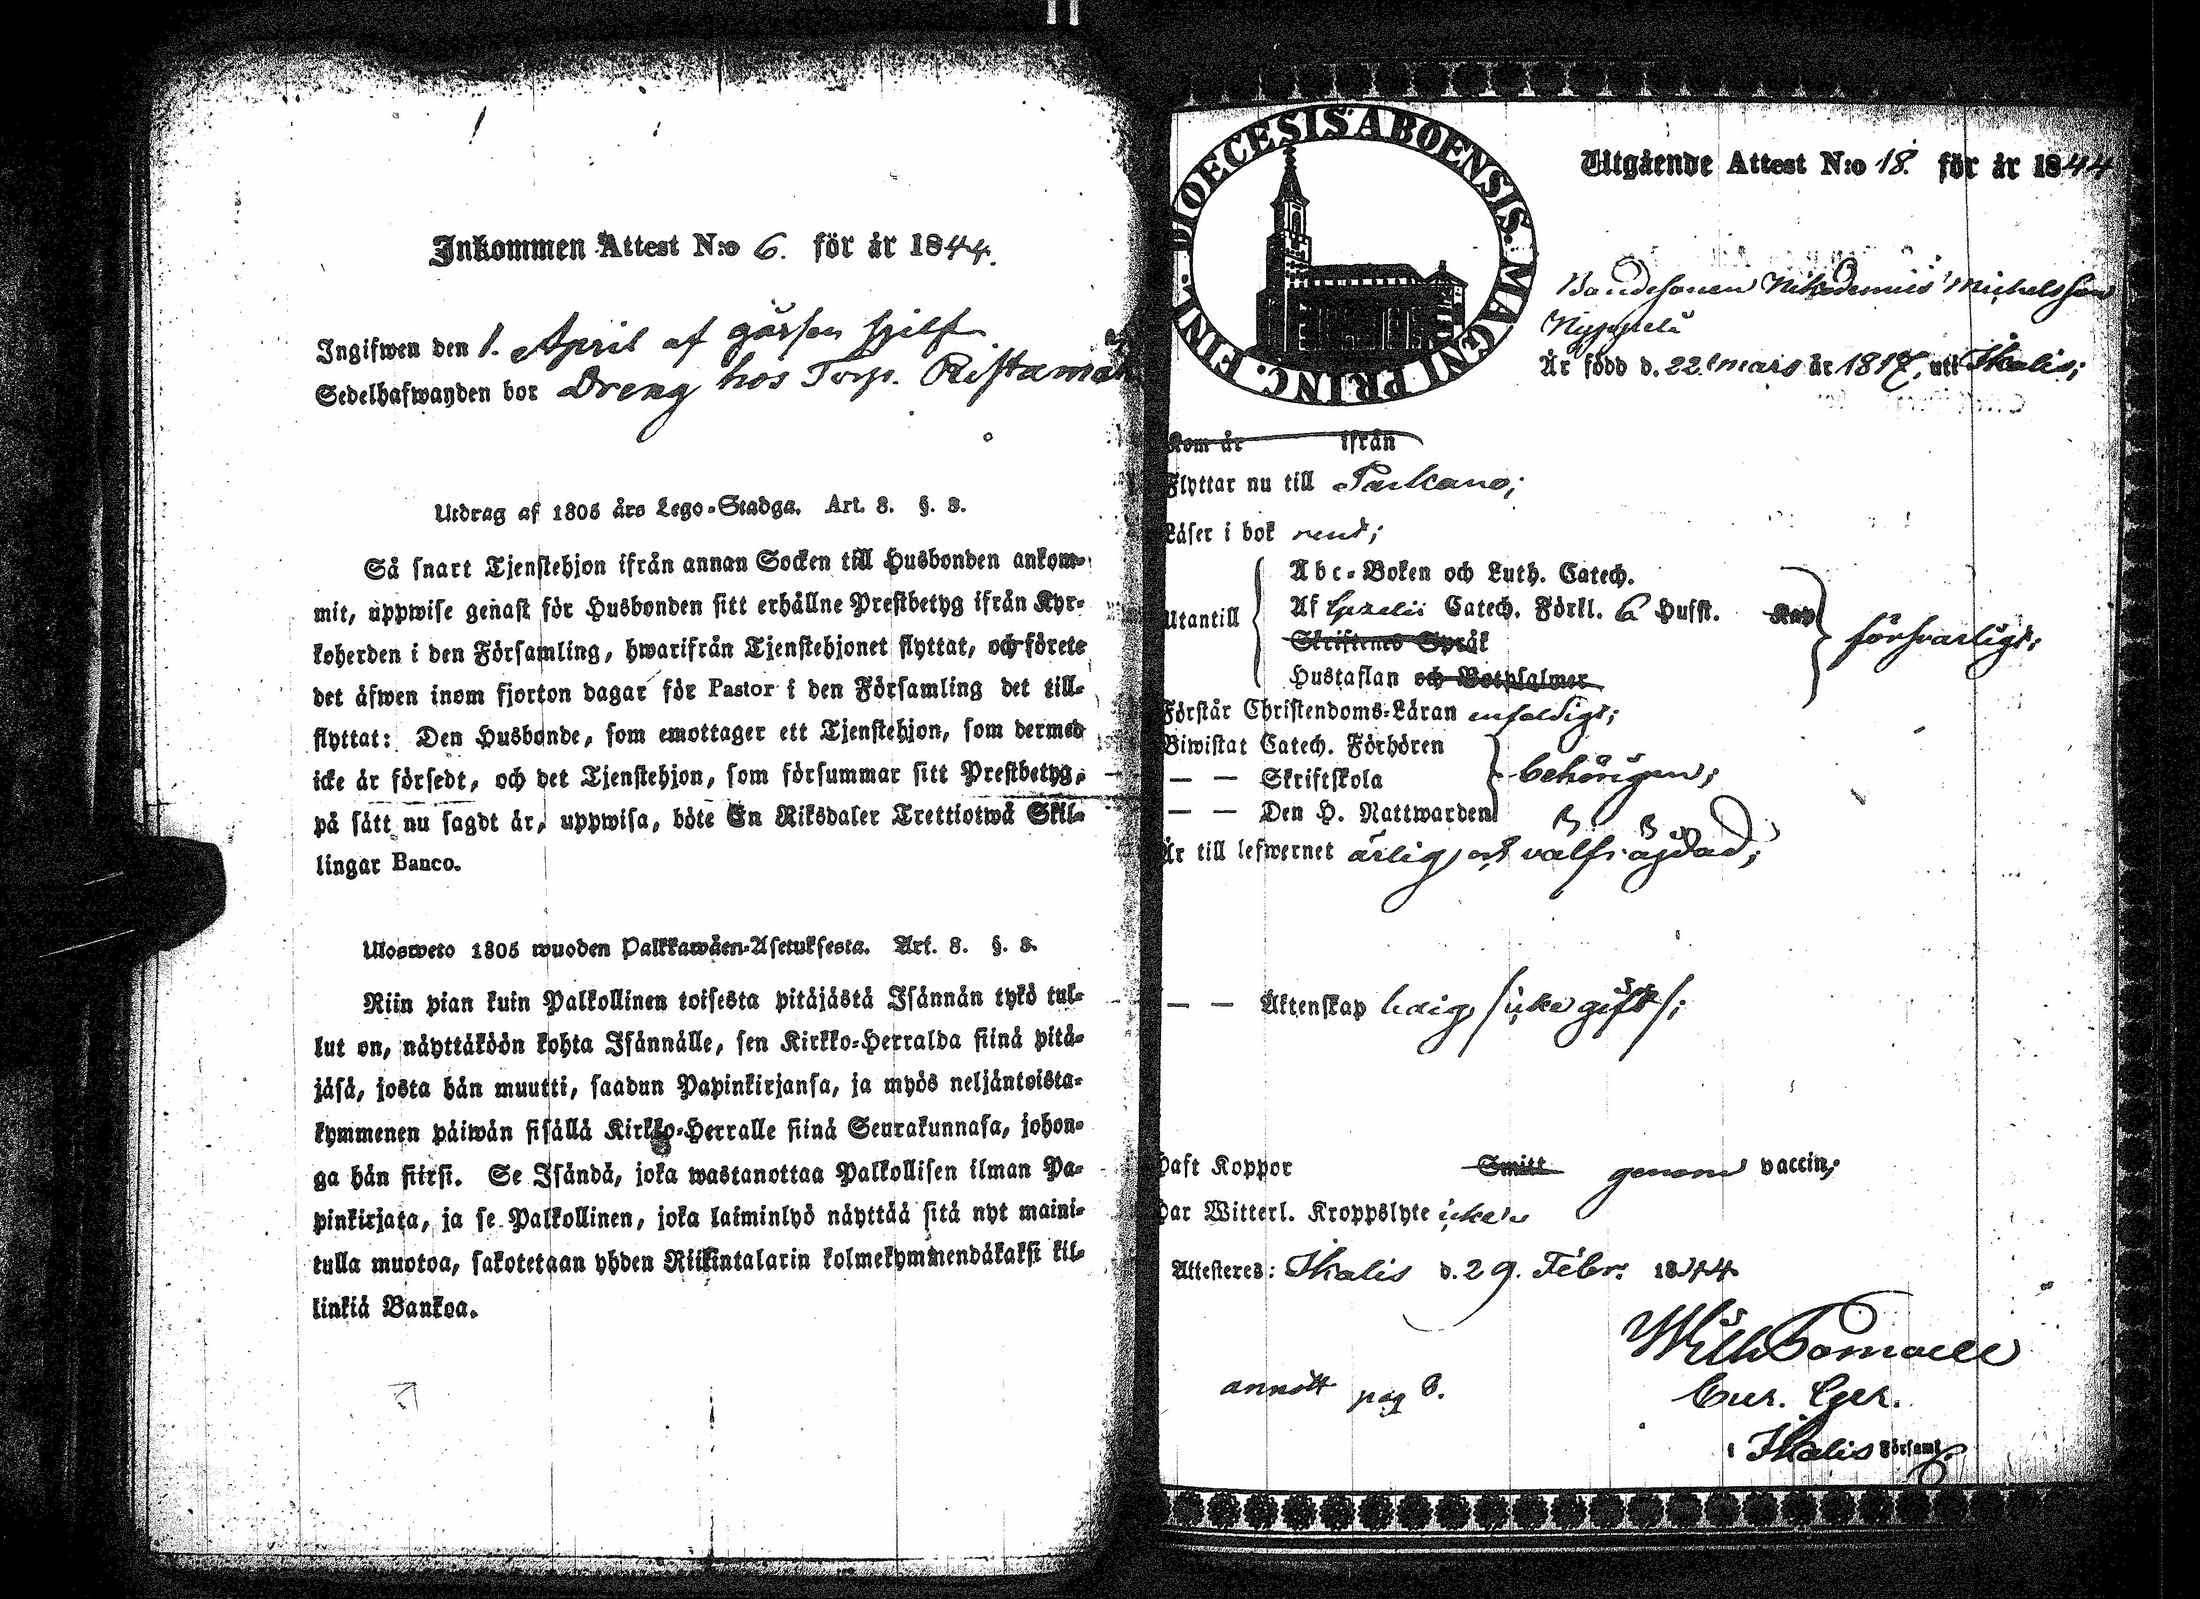 Inkommen Attest N:o 6. för år 1844.
Ingifwen den 1. April af gåssen sjelf
Sedelhafwanden bor Dreng hos Torp. Ristamäki
Utdrag af 1805 års Lego-Stadga. Art. 8. §. 3.
Så snart Tjenstehjon ifrån annan Socken till Husbonden ankom-
mit, uppwise genast för Husbonden sitt erhållne Prestbetyg ifrån Kyr-
koherden i den Församling, hwarifrån Tjenstehjonet flyttat, och förete
det äfwen inom fjorton dagar för Pastor i den Församling det till-
flyttat: Den Husbonde, som emottager ett Tjenstehjon, som dermed
icke är försedt, och det Tjenstehjon, som försummar sitt Prestbetyg,
på sätt nu sagdt är, uppwisa, böte En Riksdaler Trettiotwå Skil-
lingar Banco.
Ulosweto 1805 wuoden Palkkawäen-Asetuksesta. Art. 8. §. 3.
Niin pian kuin Palkollinen toisesta pitäjästä Isännän tykö tul-
lut on, näyttäköön kohta Isännälle, sen Kirkko-Herralda siinä pitä-
jäsä, josta hän muutti, saadun Papinkirjansa, ja myös neljäntoista-
kymmenen päiwän sisällä Kirkko-Herralle siinä Seurakunnasa, johon-
ga hän siirsi. Se Isändä, joka wastanottaa Palkollisen ilman Pa-
pinkirjata, ja se Palkollinen, joka laiminlyö näyttää sitä nyt maini-
tulla muotoa, sakotetaan yhden Riikintalarin kolmekymmendäkaksi kil-
linkiä Bankoa.
DIOECESIS ABOENSIS. MAGNI PRINC. FINL.
Utgående Attest N:o 18. för år 1844
Bondesonen Nikodemus Michelsson
Nyppelä
Är född d. 22 mars år 1817, uti Ikalis;
Kom år ifrån
Flyttar nu till Parkano;
Läser i bok rent;
Utantill
Abc-Boken och Luth. Catech.
Af Gezelii Catech. Förkl. 6 Hufst. Kap
Skriftenes Språk
Hustaflan och Botpsalmer
försvarligt;
Förstår Christendoms-Läran enfaldigt;
Biwistat Catech. Förhören
— — Skriftskola
— — Den H. Nattwarden
behörigen;
Är till lefwernet ärlig och välfrägdad;
— — Äktenskap ledig /icke gift/;
Haft Koppor Smitt genom vaccin;
Har Witterl. Kroppslyte icke
Attesteres: Ikalis d. 29. Febr. 1844
Wilh
Cur. Cger.
i Ikalis Församl.
annott pag 8.